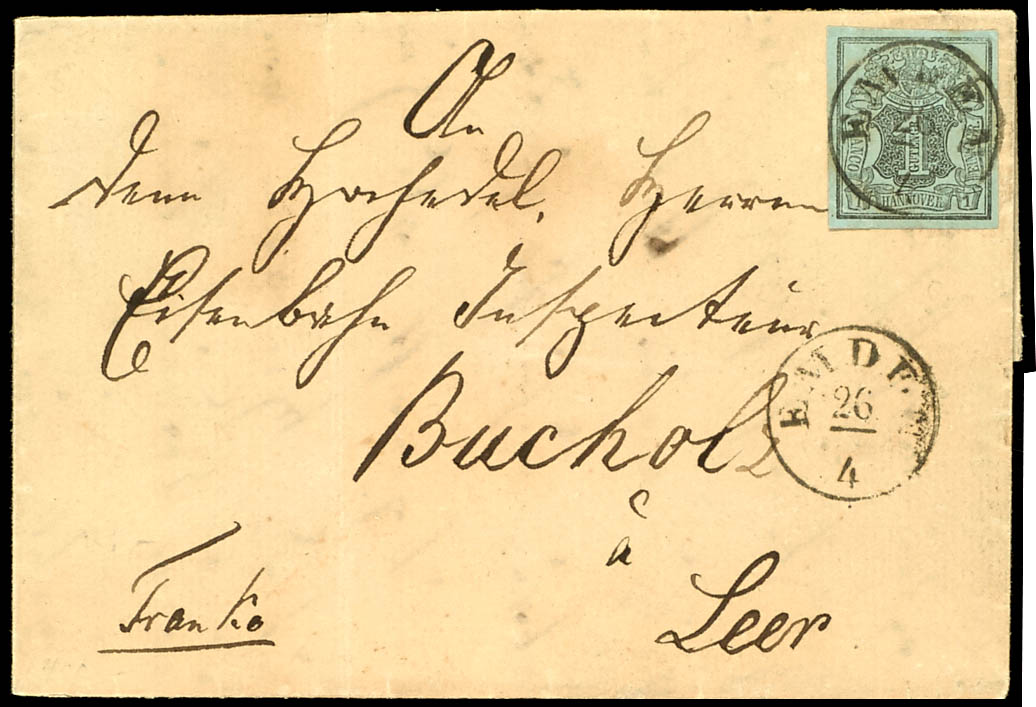 An
dem Hochedel. Herrn
Eisenbahn Inspecteur
Bucholz
à
Leer
Franko
EMDEN
26
4
EMDEN
26
GUTENGR
HANNOVER
1
1